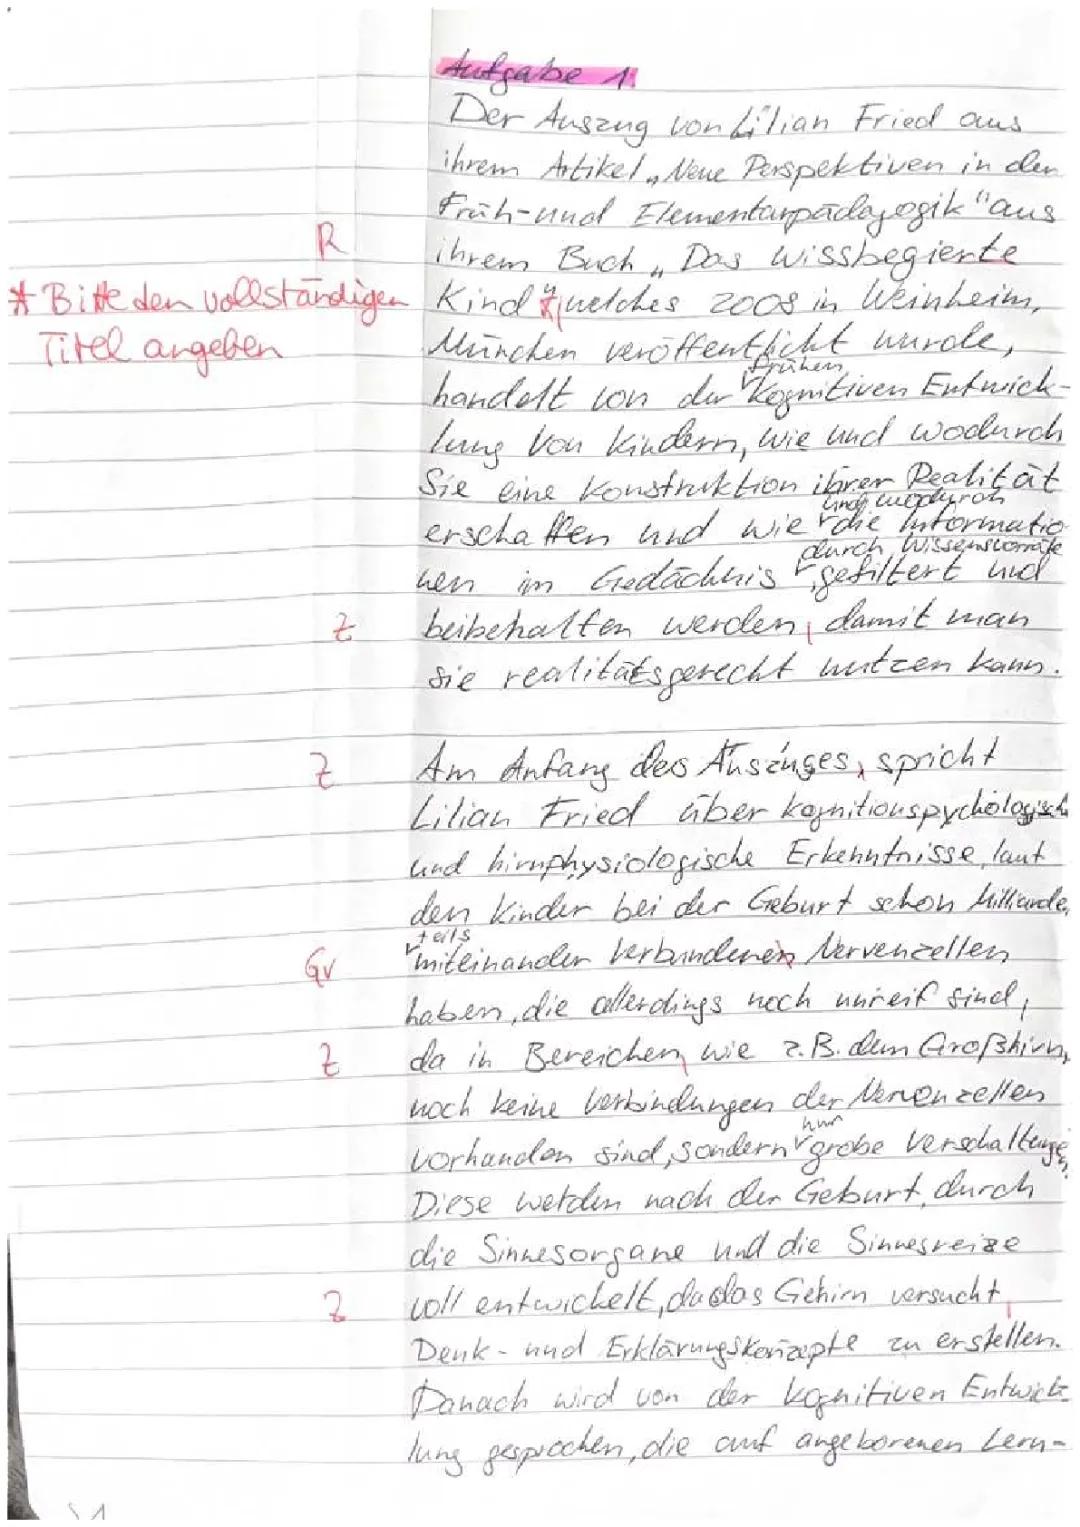 Aufgabe 1:
Der Auszug von Lilian Fried aus
ihrem Artikel „Neue Perspektiven in der
Früh- und Elementarpädagogik" aus
R
ihrem Buch „Das wissbegierte
* Bitte den vollständigen
Titel angeben
Kind" * welches 2008 in Weinheim,
München veröffentlicht wurde,
frühen
handelt von der kognitiven Entwick-
lung von Kindern, wie und wodurch
Sie eine Konstruktion ihrer Realität
und wodurch
erschaffen und wie die Informatio
durch Wissensvorräte
nen im Gedächnis gefiltert und
Z
beibehalten werden, damit man
sie realitätsgerecht nutzen kann.
Z
Am Anfang des Auszuges, spricht
Lilian Fried über kognitionspychologisch
und hirnphysiologische Erkenntnisse, laut
den Kinder bei der Geburt schon Milliarde,
teils
Gr
miteinander verbundenen Nervenzellen
haben, die allerdings noch unreif sind,
Z
da in Bereichen, wie z.B. dem Großhirn,
noch keine Verbindungen der Nervenzellen
nur
vorhanden sind, sondern grobe Verschaltungen.
Diese werden nach der Geburt, durch
die Sinnesorgane und die Sinnesreize
Z
voll entwickelt, da das Gehirn versucht,
Denk- und Erklärungskonzepte zu erstellen.
Danach wird von der kognitiven Entwick-
lung gesprochen, die auf angeborenen Lern-